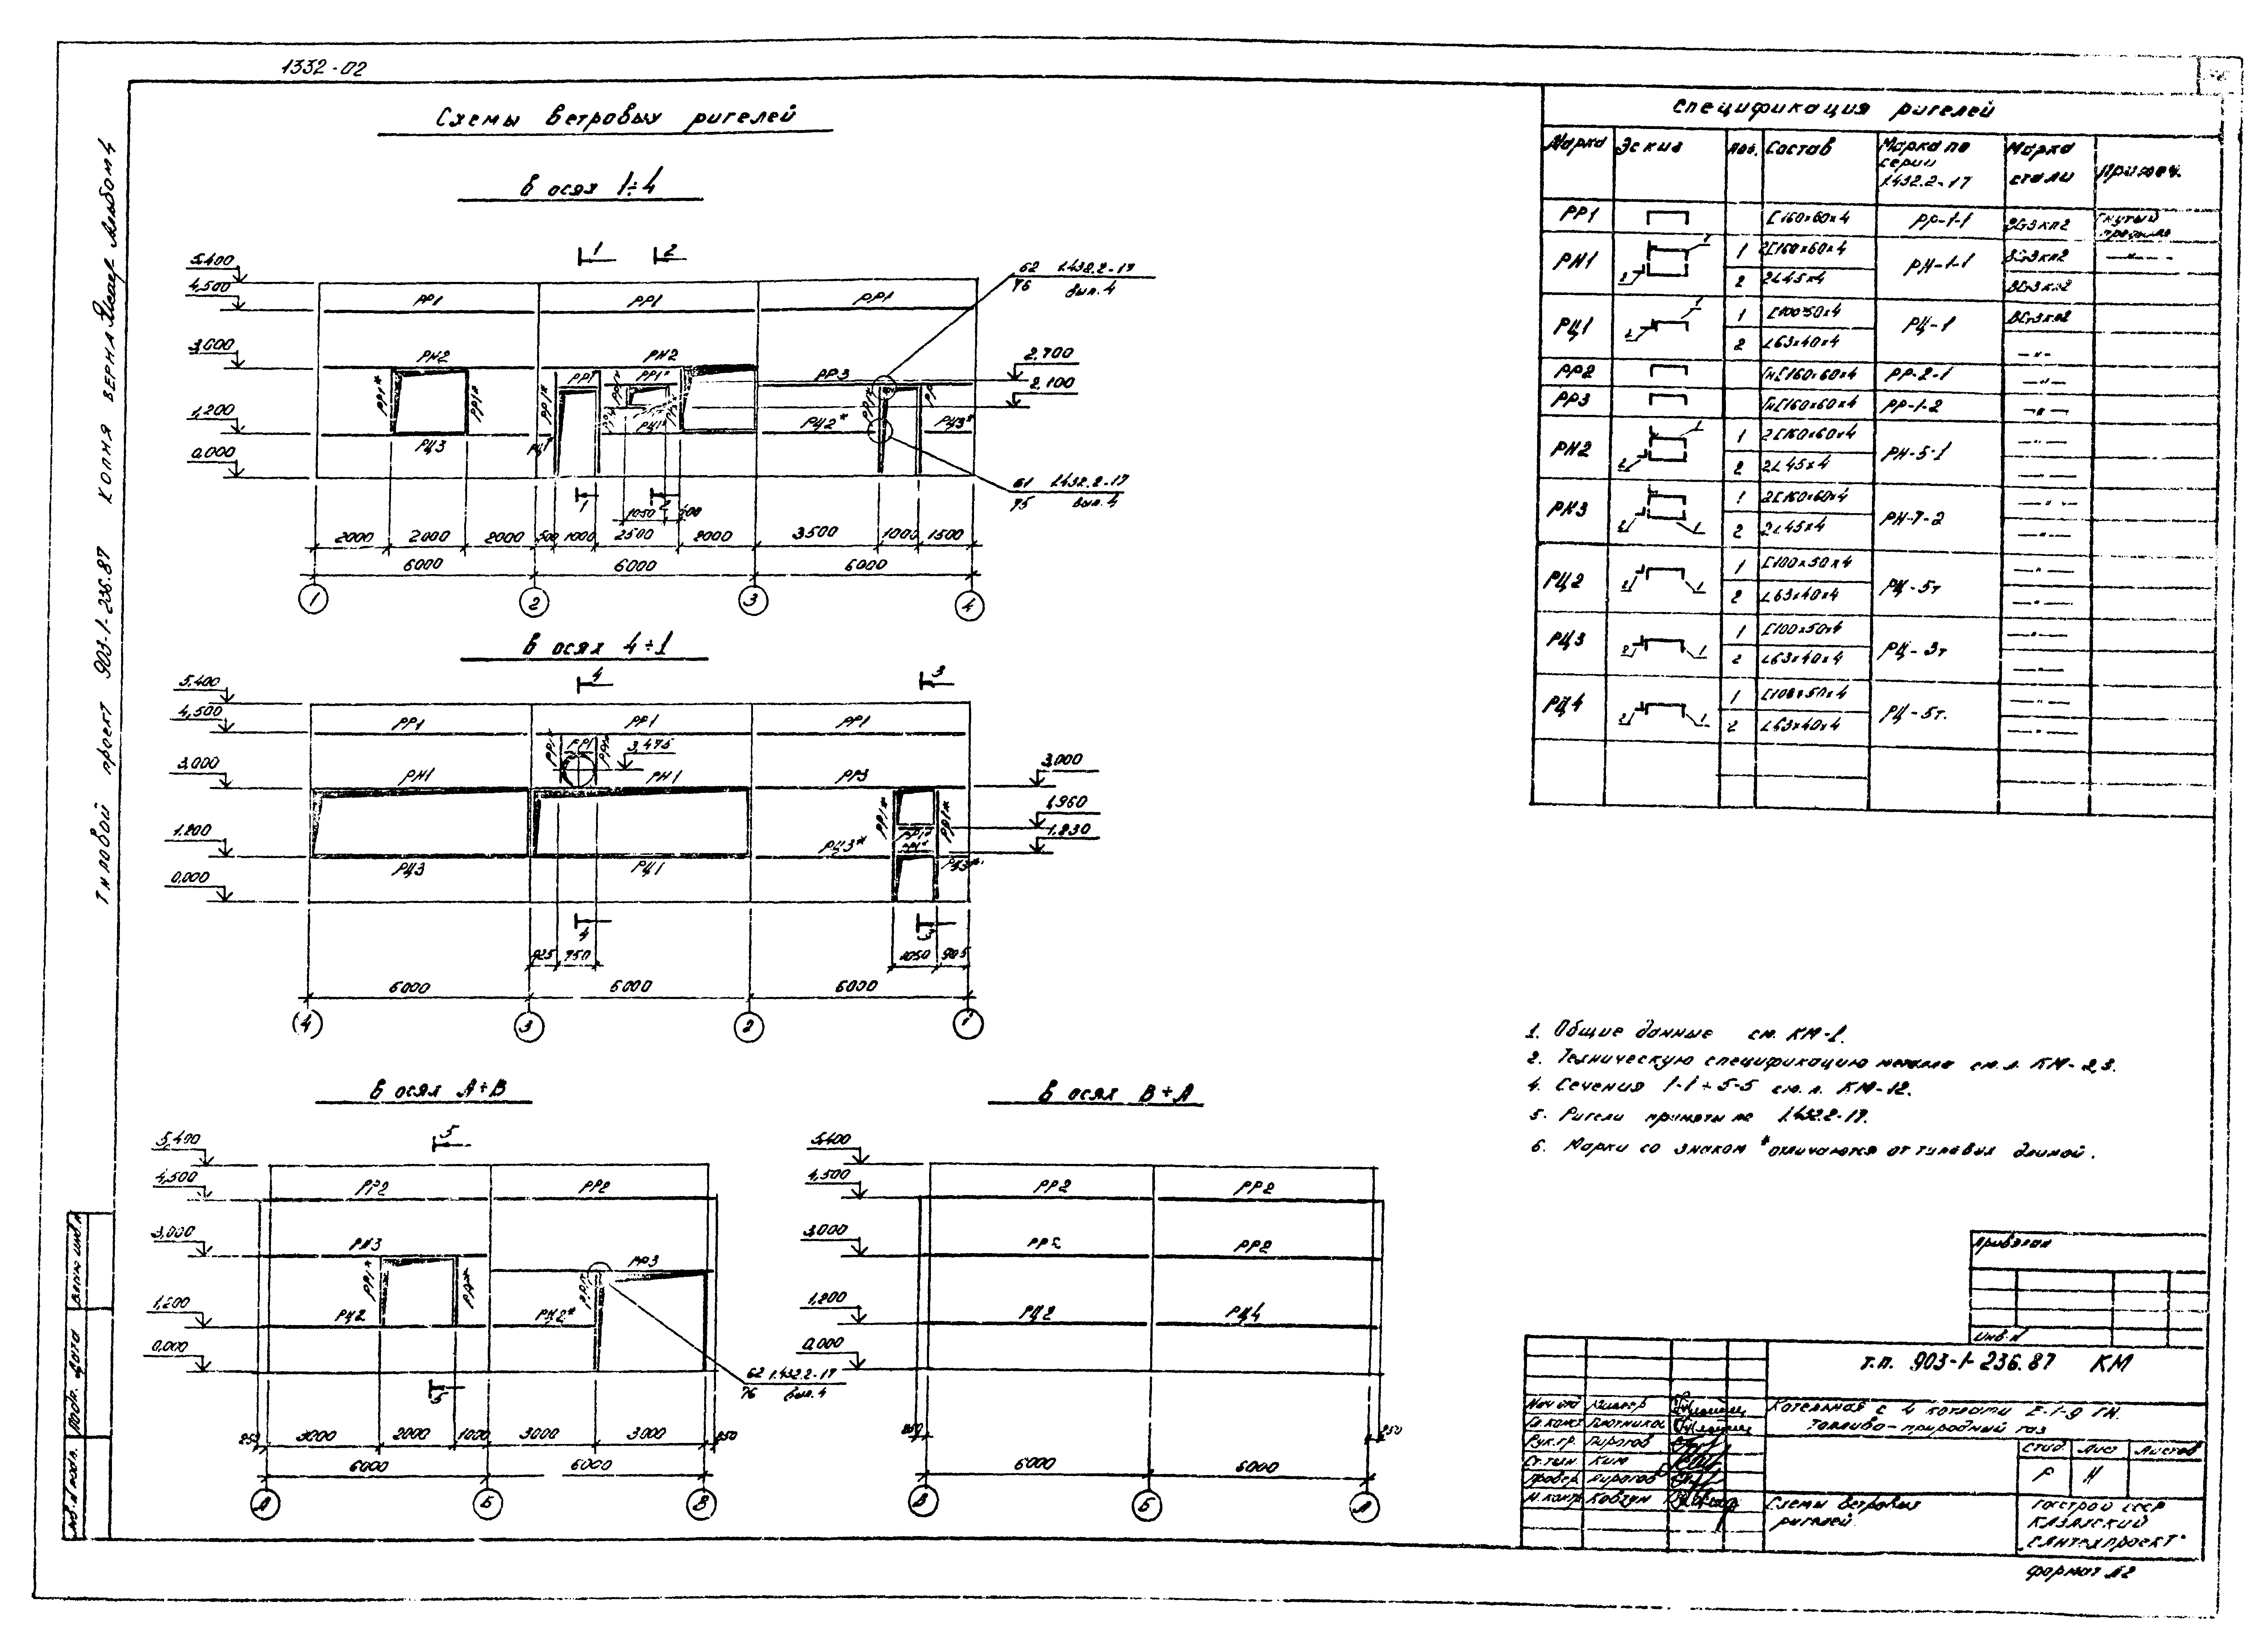 1332-02
Типовой проект 903-1-236.87 Копия верна Альбом 4
Схемы ветровых ригелей
В осях 1÷4
1 2
5,400
4,500
3,000
1,200
0,000
РР1 РР1 РР1
РН2 РН2 РР3
РР1* РР1* РР1* РР1 РР1*
РЦ3 РЦ1* РЦ1* РЦ2* РЦ3*
2,700
2,100
62 1.432.2-17
76 вып. 4
61 1.432.2-17
75 вып. 4
1 2
1050 500
2000 2000 2000 500 1000 2500 2000 3500 1000 1500
6000 6000 6000
1 2 3 4
В осях 4÷1
4 3
5,400
4,500
3,000
1,200
0,000
РР1 РР1 РР1
РР1* РР1 РР1* 3,475
РН1 РН1 РР3
РР1* РР1* РР1* РР1*
РЦ3 РЦ1 РЦ3* РЦ3*
3,000
1,960
1,230
4 3
925 750 1050 905
6000 6000 6000
4 3 2 1
В осях А÷В
5
5,400
4,500
3,000
1,200
0,000
РР2 РР2
РН3 РР3
РР1* РР1*
РЦ2 РЦ2*
62 1.432.2-17
76 вып. 4
5
250 3000 2000 1000 3000 3000 250
6000 6000
А Б В
В осях В÷А
5,400
4,500
3,000
1,200
0,000
РР2 РР2
РР2 РР2
РЦ2 РЦ4
250 250
6000 6000
В Б А
Спецификация ригелей
Марка Эскиз Поз. Состав Марка по серии 1.432.2-17 Марка стали Примеч.
РР1 [160×60×4 РР-1-1 ВСт3кп2 Гнутый профиль
РН1 1 2[160×60×4 РН-1-1 ВСт3кп2 —"—
2 2∟45×4 ВСт3кп2
РЦ1 1 [100×50×4 РЦ-1 ВСт3кп2
2 ∟63×40×4 —"—
РР2 Гн[160×60×4 РР-2-1 —"—
РР3 Гн[160×60×4 РР-1-2 —"—
РН2 1 2[160×60×4 РН-5-1 —"—
2 2∟45×4 —"—
РН3 1 2[160×60×4 РН-7-2 —"—
2 2∟45×4 —"—
РЦ2 1 [100×50×4 РЦ-5т —"—
2 ∟63×40×4 —"—
РЦ3 1 [100×50×4 РЦ-3т —"—
2 ∟63×40×4 —"—
РЦ4 1 [100×50×4 РЦ-5т. —"—
2 ∟63×40×4 —"—
1. Общие данные см. КМ-1.
2. Техническую спецификацию металла см. л. КМ-2,3.
4. Сечения 1-1÷5-5 см. л. КМ-12.
5. Ригели приняты по 1.432.2-17.
6. Марки со знаком * отличаются от типовых длиной.
Привязан
Инв. №
т.п. 903-1-236.87 КМ
Котельная с 4 котлами Е-1-9 ГН.
Топливо-природный газ
Нач. отд
Гл. конст Плотников
Рук. гр. Пирогов
Ст. техн. Ким
Провер. Пирогов
Н. контр. Ковзун
Стад. Лист Листов
Р 11
Схемы ветровых
ригелей
Госстрой СССР
Казахский
Сантехпроект
Формат А2
Взам. инв. №
Подп. и дата
Инв. № подл.